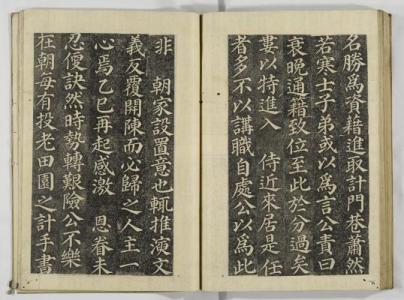 名勝爲資藉進取計門巷蕭然
若寒士子弟或以爲言公責曰
衰晚通籍致位至此於分過矣
婁以特進入 侍近來居是任
者多不以講職自處公以爲此
非 朝家設置意也輒推演文
義反覆開陳而必歸之人主一
心焉乙巳再起感激 恩眷未
忍便訣然時勢轉艱險公不樂
在朝每有投老田園之計手書